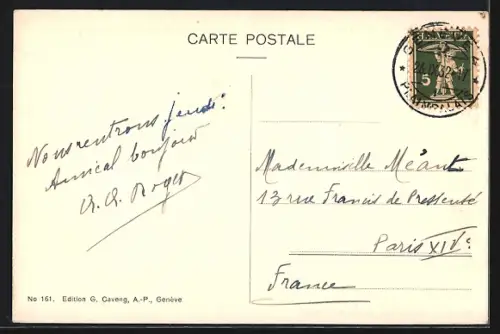 CARTE POSTALE
GENÈVE
5
PLAINPALAIS
Nous rentrons jeudi.
Amical bonjour
Roger
Mademoiselle Méant
13 rue Francis de Pressensé
Paris XIVe
France
No 161. Edition G. Caveng, A.-P., Genève